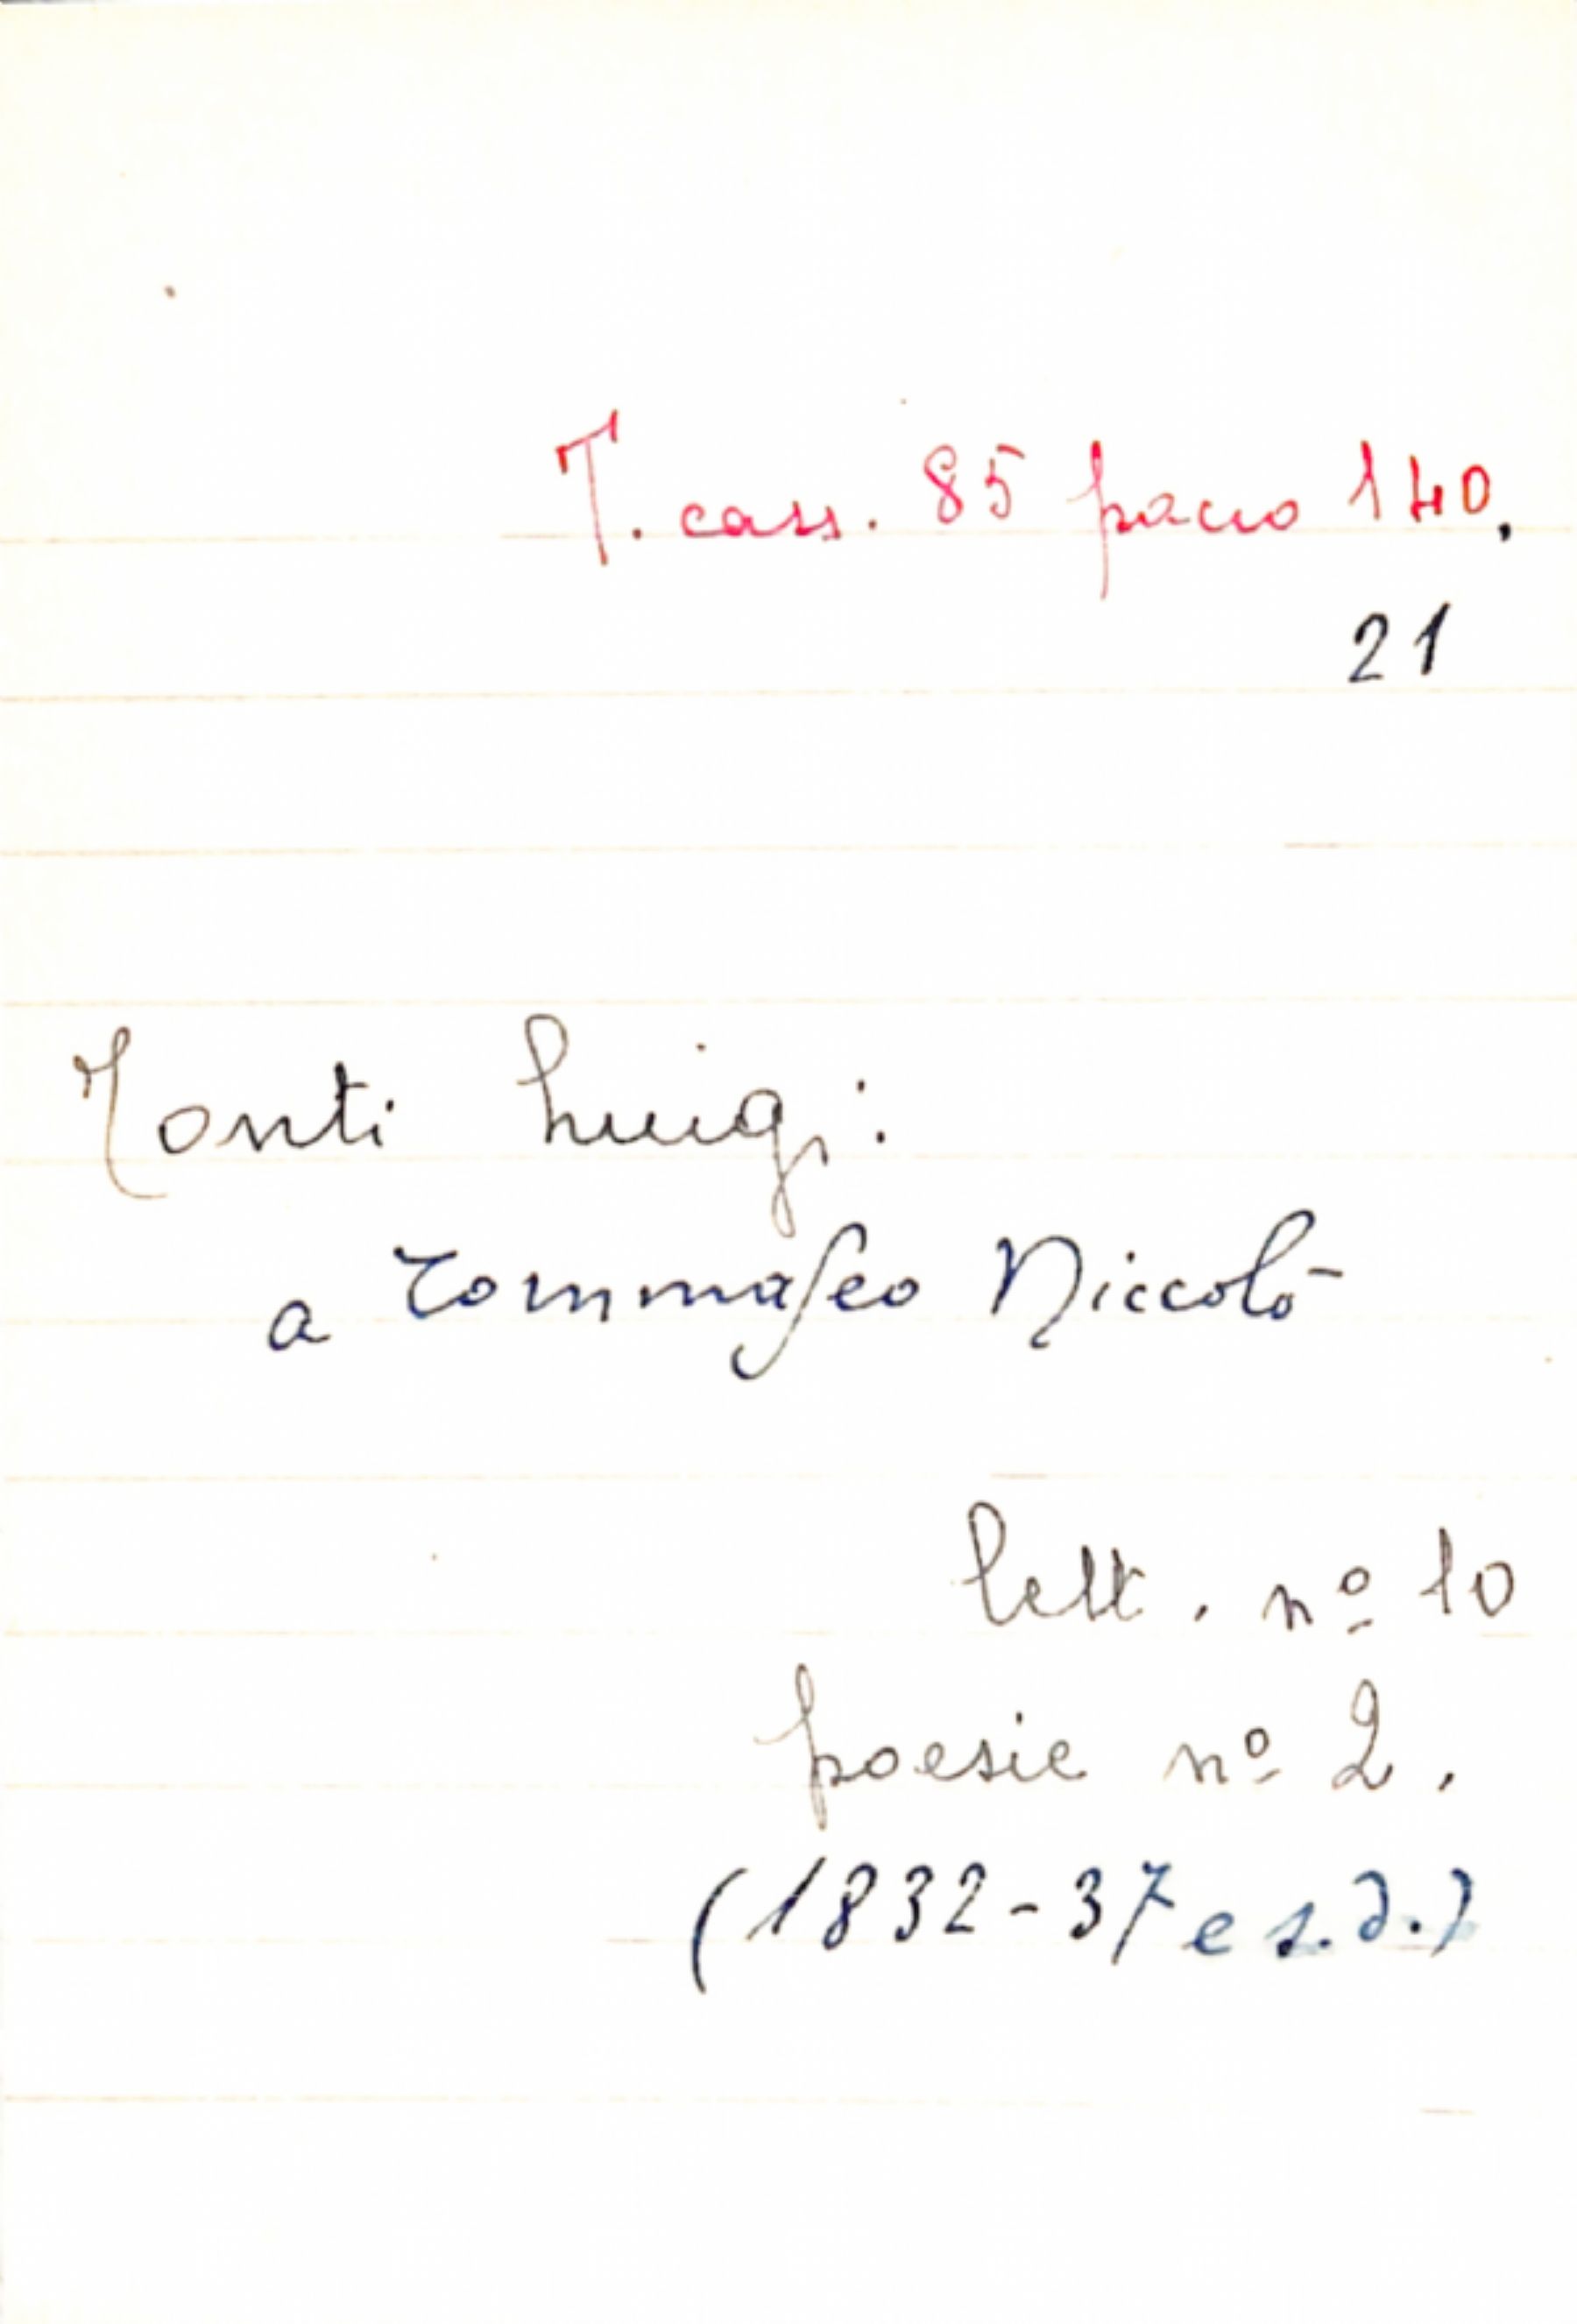 T. cass. 85 pacco 140.
21
Tonti Luigi:
a Tommaseo Niccolò
lett. nº 10
poesie nº 2.
(1832-37 e s.d.)